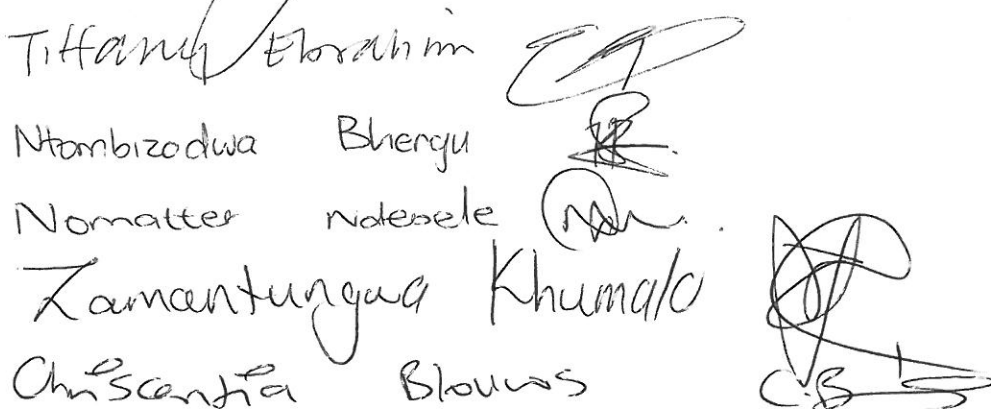 Tiffany Ebrahim
Ntombizodwa Bhengu
Nomatter Ndebele
Zamantungwa Khumalo
Chriscentia Blouws C.B